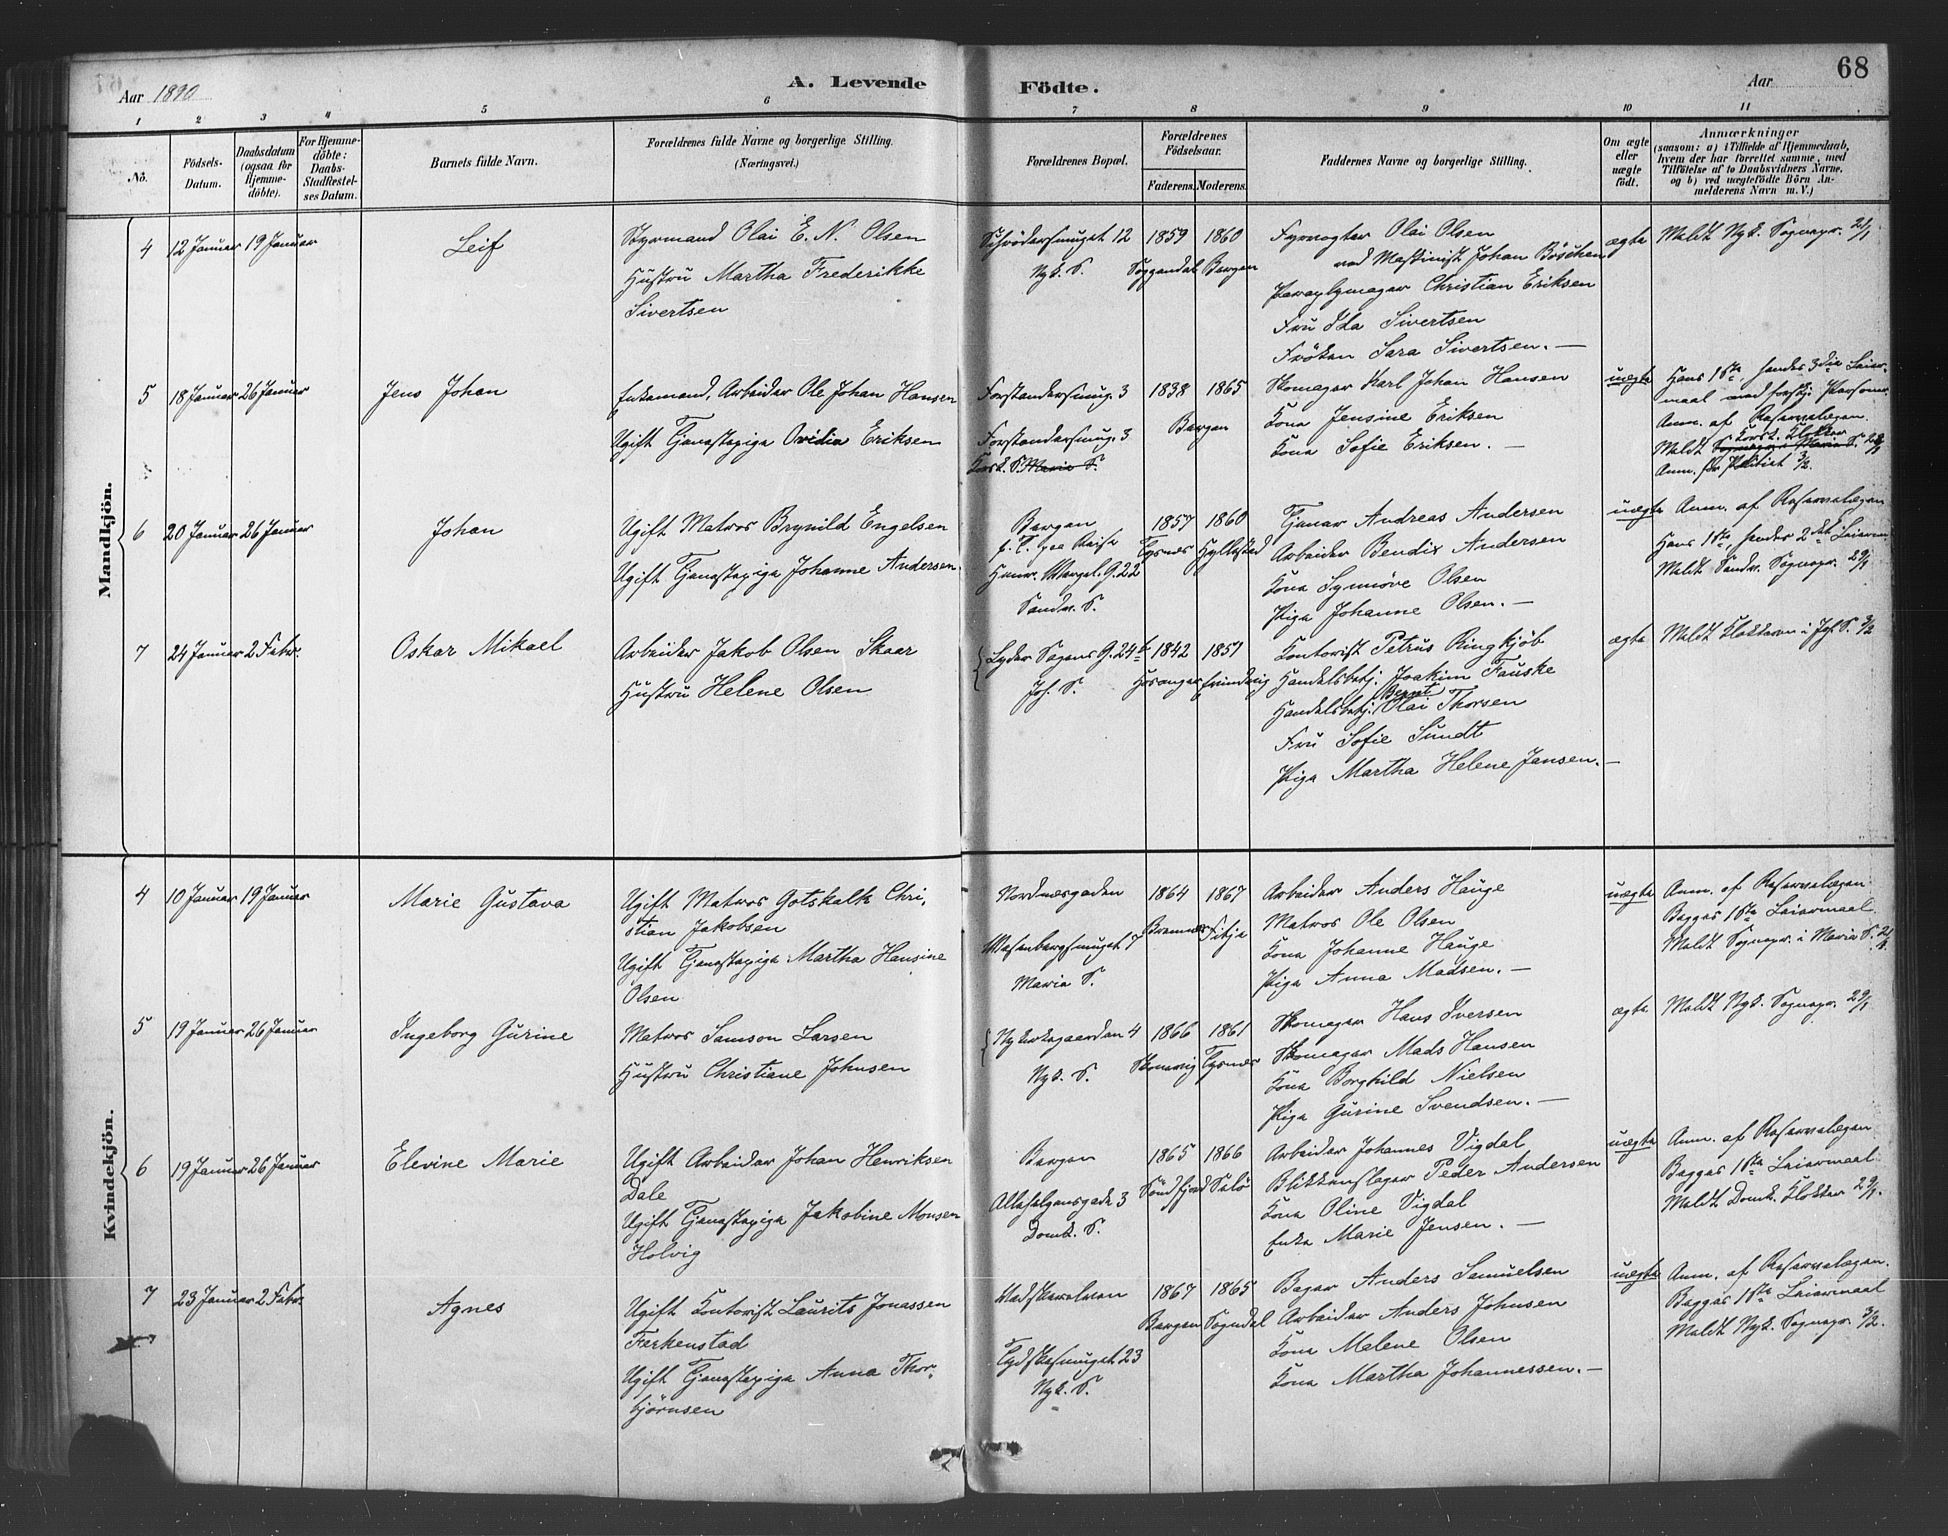 68
Aar 1890
A. Levende Födte.
Aar
1 2 3 4 5 6 7 8 9 10 11
No.
Födsels-Datum.
Daabsdatum (ogsaa for Hjemme-döbte).
For Hjemme-döbte: Daabs-Stadfæstel-ses Datum.
Barnets fulde Navn.
Forældrenes fulde Navne og borgerlige Stilling.
(Næringsvei.)
Forældrenes Bopæl.
Forældrenes Födselsaar.
Faderens. Moderens.
Faddernes Navne og borgerlige Stilling.
Om ægte eller uægte födt.
Anmærkninger
(saasom: a) i Tilfælde af Hjemmedaab,
hvem der har forrettet samme, med
Tilföielse af to Daabsvidners Navne,
og b) ved uægtefödte Börn An-
melderens Navn m. V.)
Mandkjön.
4 12 Januar 19 Januar
Leif
Styrmand Olai E. N. Olsen
Hustru Martha Frederikke
Sivertsen
Schrödersmuget 12
Nyk. S.
1859 1860
Soggendal Bergen
Fyrvogter Olai Olsen
ved Maskinist Johan Böschen
Paraplymager Christian Eriksen
Fru Ida Sivertsen
Fröken Sara Sivertsen. —
ægte
Meldt Nyk. Sognepr. 21/1
5 18 Januar 26 Januar
Jens Johan
Enkemand, Arbeider Ole Johan Hansen
Ugift Tjenestepige Ovidia Eriksen
Forstandersmug. 3
Forstandersmug. 3
Korsk. S. Maria S.
1838 1865
Bergen
Skomager Karl Johan Hansen
Kona Jensine Eriksen
Kona Sofie Eriksen. —
uægte
Hans 1ste hendes 3die Leier-
maal med forskj. Personer
Anm. af Reservelægen
Korsk. Klokker
Meldt Sognepr. i Maria S. 28/1
Anm. for Politiet 3/2.
6 20 Januar 26 Januar
Johan
Ugift Matros Brynild Engelsen
Ugift Tjenestepige Johanne Andersen.
Bergen
f. T. paa Reise
Henr. Wergel. G. 22
Sandv. S.
1857 1860
Tysnes Hyllestad
Tjener Andreas Andersen
Arbeider Bendix Andersen
Kona Synnöve Olsen
Pige Johanne Olsen. —
uægte
Anm. af Reservelægen
Hans 1ste hendes 2det Leierm.
Meldt Sandv. Sognepr. 29/1
7 24 Januar 2 Febr.
Oskar Mikael
Arbeider Jakob Olsen Skaar
Hustru Helene Olsen
Lyder Sagens G. 24 b
Joh. S.
1842 1857
Hosanger Evindvig
Kontorist Petrus Ringkjöb
Handelsbetj. Joakim Fauske
Bernt
Handelsbetj. Olai Thorsen
Fru Sofie Sundt
Pige Martha Helene Jansen. —
ægte
Meldt Klokkeren i Joh. S. 3/2
Kvindekjön.
4 10 Januar 19 Januar
Marie Gustava
Ugift Matros Gotskalk Chri-
stian Jakobsen
Ugift Tjenestepige Martha Hansine
Olsen
Nordnæsgaden
Wesenbergsmuget 7
Maria S.
1864 1867
Bremnes Fitje
Arbeider Anders Hauge
Matros Ole Olsen
Kona Johanne Hauge
Pige Anna Madsen. —
uægte
Anm. af Reservelægen
Begges 1ste Leiermaal
Meldt Sognepr. i Maria S. 21/1.
5 19 Januar 26 Januar
Ingeborg Gurine
Matros Samson Larsen
Hustru Christiane Johnsen
Nykirkegaarden 4
Nyk. S.
1866 1861
Skonevig Tysnes
Skomager Hans Iversen
Skomager Mads Hansen
Kona Borghild Nielsen
Pige Gurine Svendsen. —
ægte
Meldt Nyk. Sognepr. 29/1
6 19 Januar 26 Januar
Elevine Marie
Ugift Arbeider Johan Henriksen
Dale
Ugift Tjenestepige Jakobine Monsen
Holvig
Bergen
Allehelgensgade 3
Domk. S.
1865 1866
Söndfjord Selö
Arbeider Johannes Vigdal
Blikkenslager Peder Andersen
Kona Oline Vigdal
Enke Marie Jensen. —
uægte
Anm. af Reservelægen
Begges 1ste Leiermaal
Meldt Domk. Klokker 29/1.
7 23 Januar 2 Febr.
Agnes
Ugift Kontorist Laurits Jonassen
Ferkenstad
Ugift Tjenestepige Anna Thor-
björnsen
Vedskralven
Tydskesmuget 23
Nyk. S.
1867 1865
Bergen Sogndal
Bager Anders Samuelsen
Arbeider Anders Johnsen
Kona Malene Olsen
Kona Martha Johannessen. —
uægte
Anm. af Reservelægen.
Begges 1ste Leiermaal
Meldt Nyk. Sognepr. 3/2.